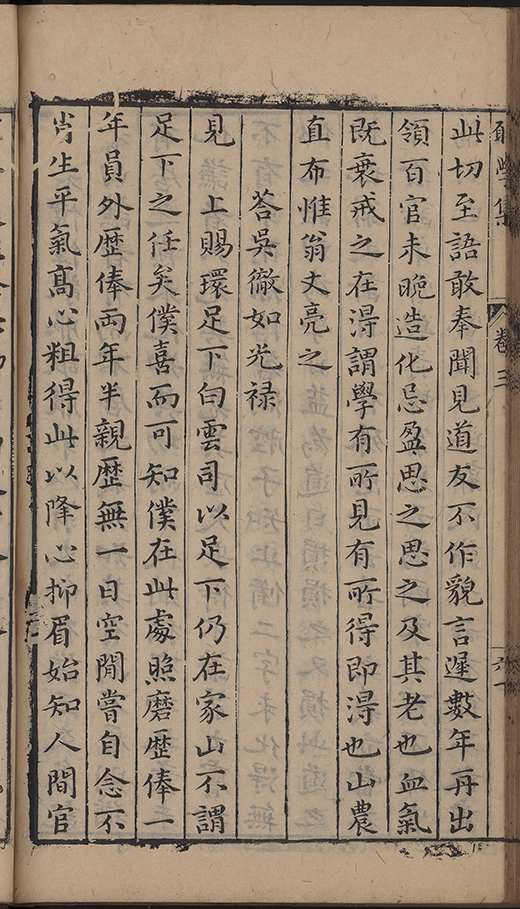 學集
卷三
此切至語敢奉聞見道友不作貌言遲數年再出
領百官未晚造化忌盈思之思之及其老也血氣
既衰戒之在淂謂學有所見有所得即淂也山農
直布惟翁丈亮之
荅吳徹如光祿
見上賜環足下白雲司以足下仍在家山不謂
足下之任矣僕喜而可知僕在此處照磨歷俸一
年員外歷俸兩年半親歷無一日空閒嘗自念不
肖生平氣髙心粗得此以降心抑眉始知人間官